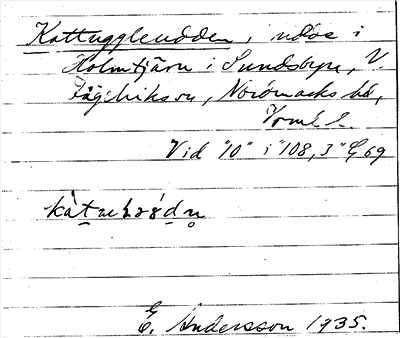 Kattuggleudden, udde i
Holmtjärn i Sundsbyn, V.
Fågelviks sn, Nordmarks hd,
Vrml. l.
Vid "10" i "108,3" G 69
E. Andersson 1935.